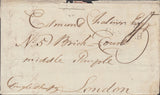 Edmund Chalmer Esqr
No 5 Brick Court
middle Temple
London